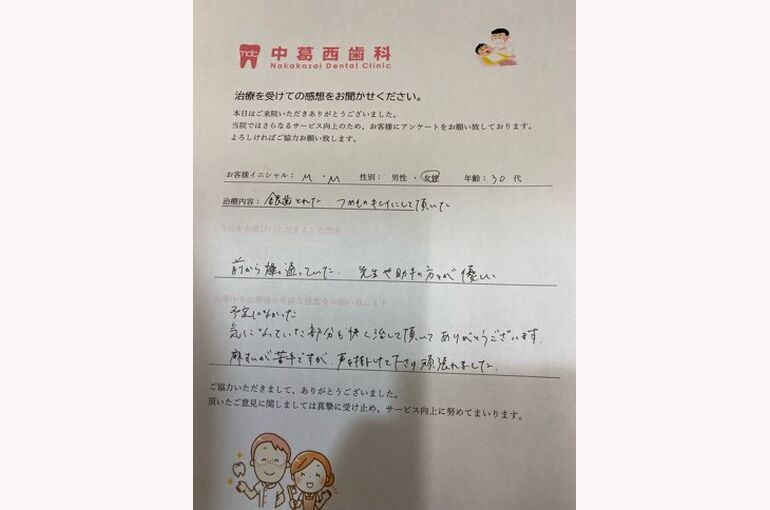 中葛西歯科
Nakakasai Dental Clinic
治療を受けての感想をお聞かせください。
本日はご来院いただきありがとうございました。
当院ではさらなるサービス向上のため、お客様にアンケートをお願い致しております。
よろしければご協力お願い致します。
お客様イニシャル： M ・ M 性別： 男性 ・ 女性 年齢：30 代
治療内容： 銀歯とれた つめものキレイにして頂いた
当院をお選びいただきました理由
前から 通っていた. 先生や助手の方々が優しい
治療中や治療後の率直な感想をお願い致します
予定になかった
気になっていた部分も快く治して頂いてありがとうございます.
麻すいが苦手ですが、声を掛けて下さり頑張れました.
ご協力いただきまして、ありがとうございました。
頂いたご意見に関しましては真摯に受け止め、サービス向上に努めてまいります。